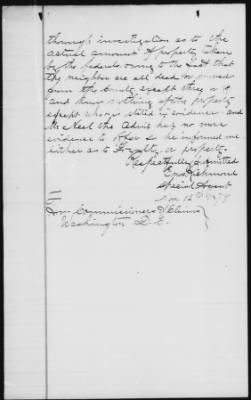 thorough investigation as to the
actual amount of property taken
by the federals owing to the fact that
the neighbors are all dead or moved
from the County except these
and know nothing of the property
except what is stated in evidence and
Mc Neel the Admr has no more
evidence to offer as he informed me
either as to Loyalty or property.
Respectfully submitted
Richmond
Special Agent
Nov 12th 1879
Hon Commissioners of Claims
Washington D.C.